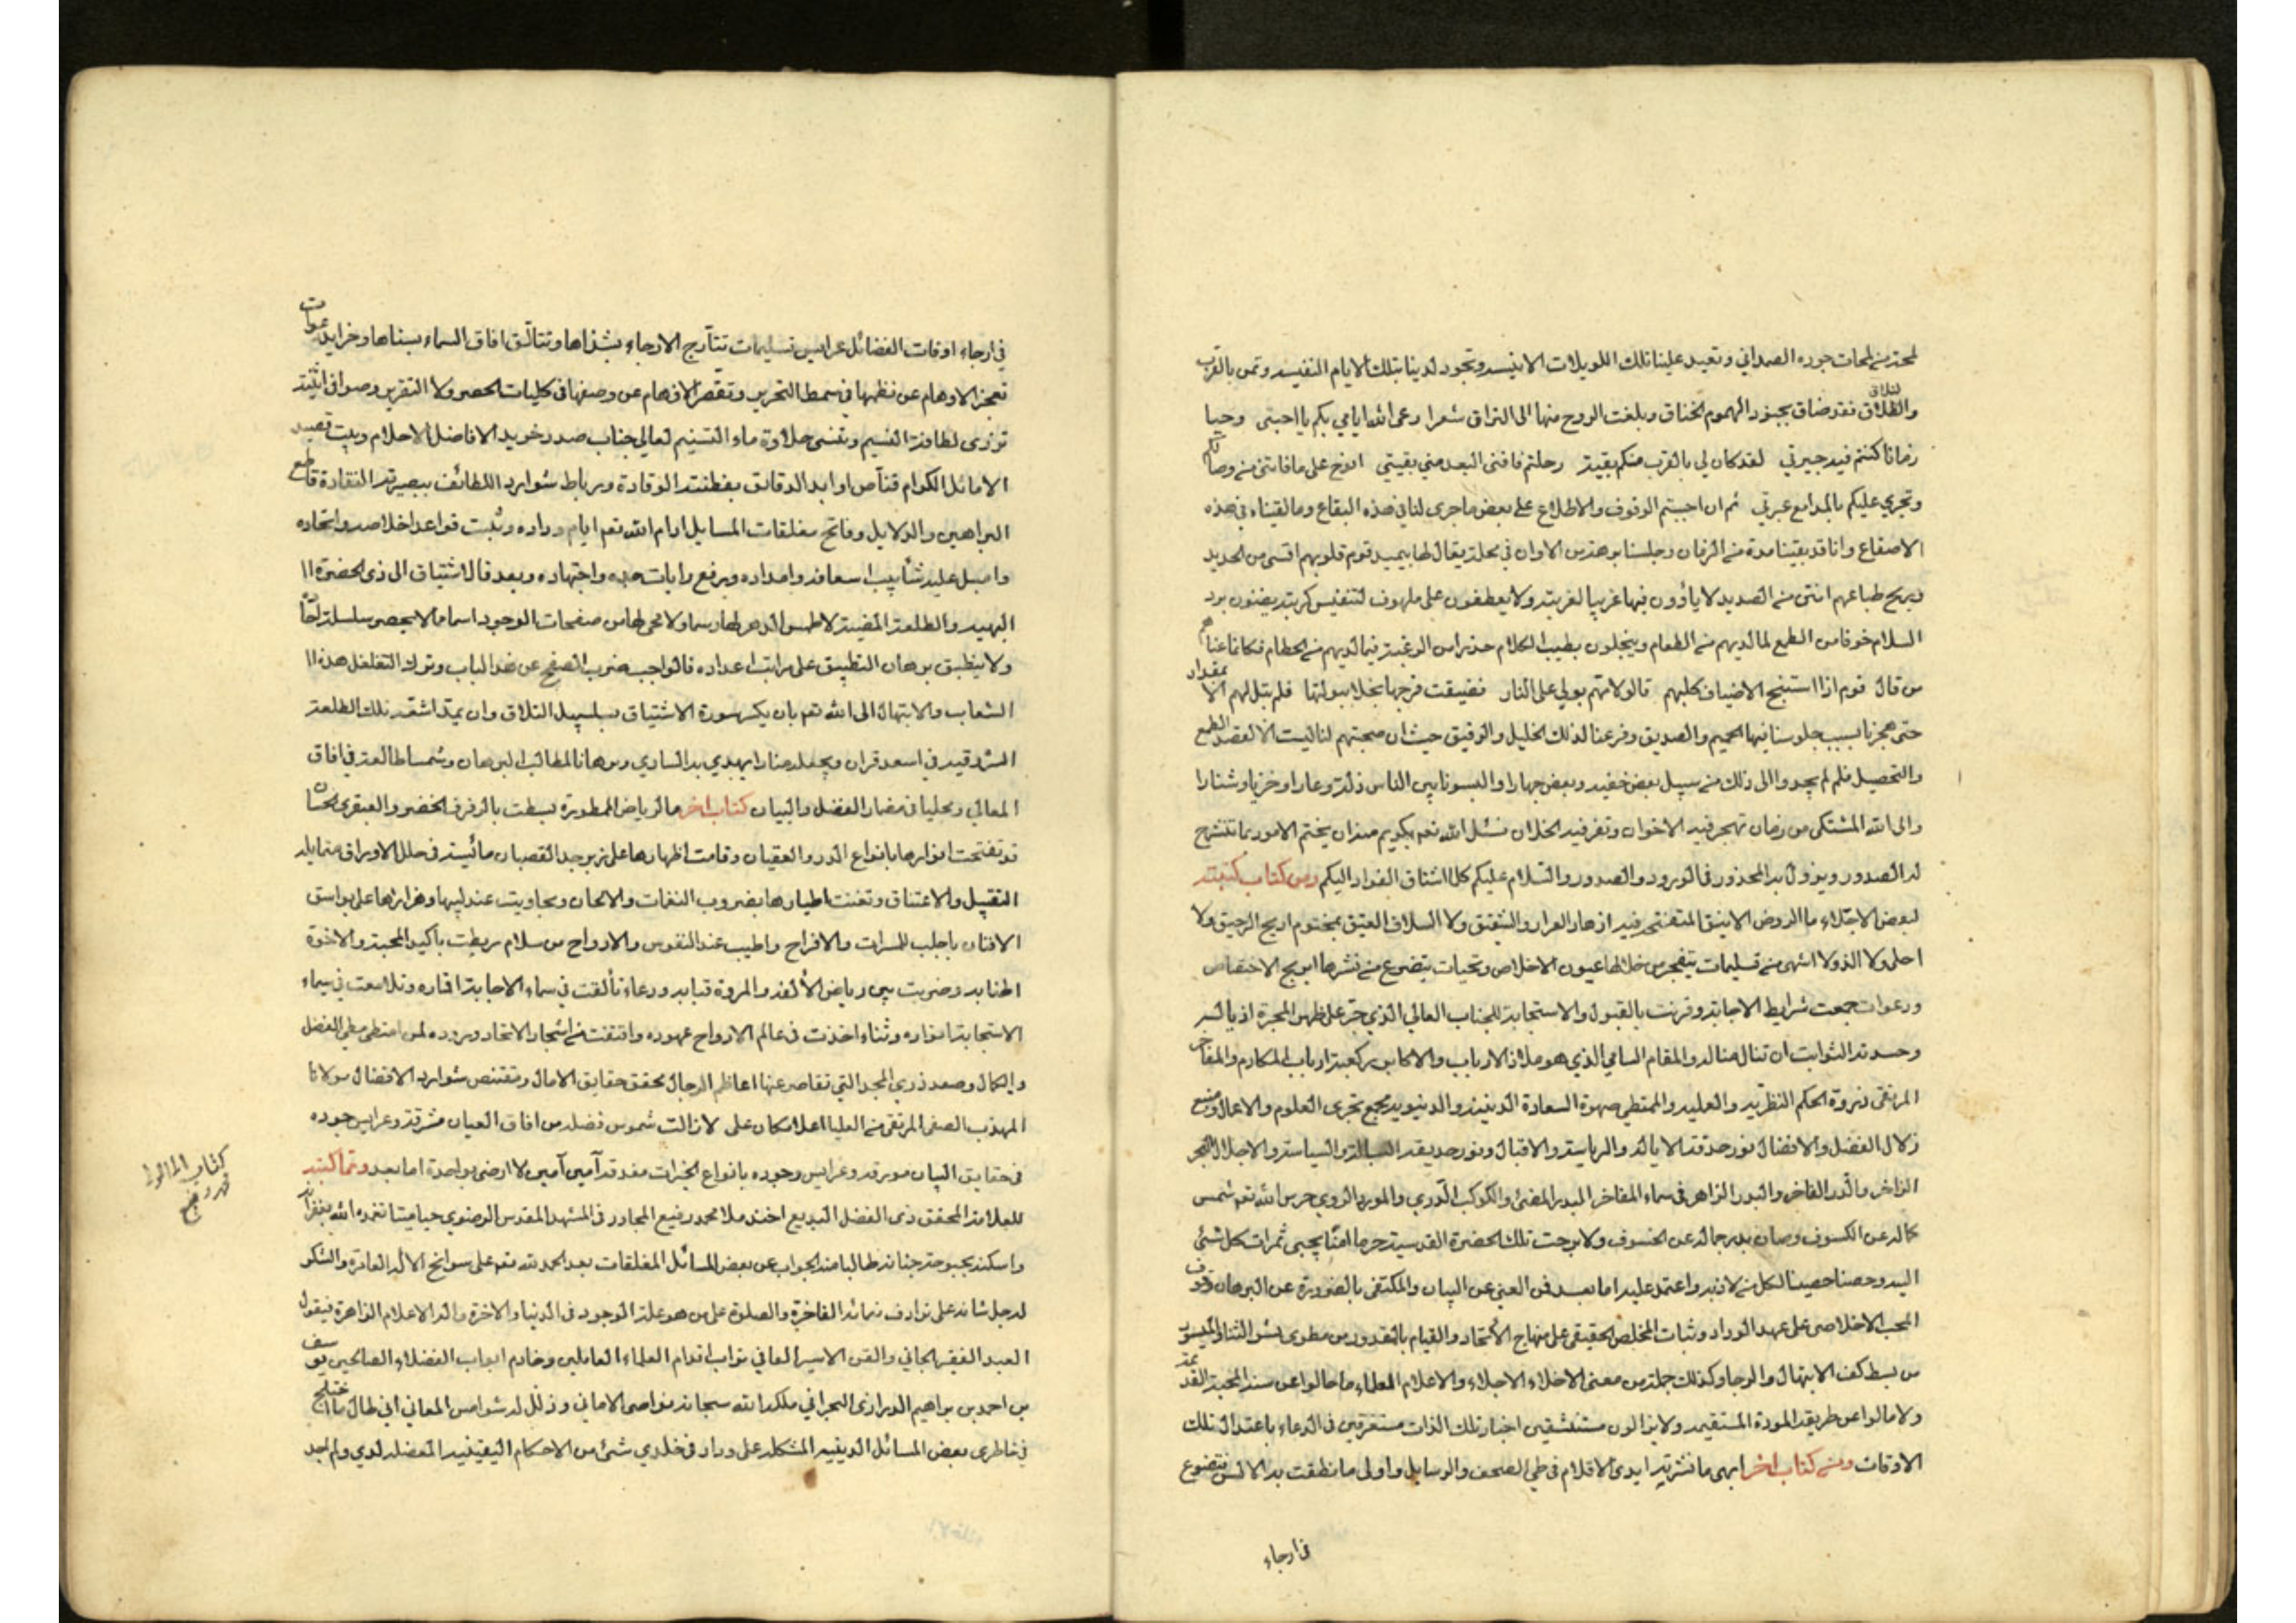 لمحة من لمحات جوده الصمداني وتعيد علينا تلك اللويلات الانيسة وتجود لدينا بتلك الايام النفيسة وتمن بالقرب
والتلاق فقد ضاق بجنود الهموم الخناق وبلغت الروح منها الى التراق شعرا رعى الله ايامي بكم يا احبتى وحيا
زمانا كنتم فيه جيرتي لقد كان لي بالقرب منكم بقية رحلتم فافنى البعد مني بقيتي انوح على ما فاتنى من وصالكم
وتجري عليكم بالمدامع عبرتي ثم ان احببتم الوقوف والاطلاع على بعض ما جرى لنا في هذه البقاع وما لقيناه في هذه
الاصقاع وانا قد بقينا مدة من الزمان وجلسنا برهة من الاوان في محلة يقال لها قوم قلوبهم اقسى من الحديد
وريح طباعهم انتن من الصديد لا ياؤون فيها غريبا لغربته ولا يعطفون على ملهوف لتنفيس كربته يضنون برد
السلام خوفا من الطمع لما لديهم من الطعام ويبخلون بطيب الكلام حذرا من الرغبة فيما لديهم من الحطام فكانما عناهم
من قال قوم اذا استنبح الاضياف كلبهم قالوا لامهم بولي على النار فضيقت فرجها بخلا ببولتها فلم تبل لهم الا بمقدار
حتى هجرنا بسبب جلوسنا فيها الحميم والصديق وفر عنا لذلك الخليل والرفيق حيث ان صحبتهم لنا ليست الا لقصد الطمع
والتحصيل فلم لم يجدوا الى ذلك من سبيل بعض خفية وبعض جهارا والبسونا بين الناس ذلة وعارا وخزيا وشنارا
والى الله المشتكى من زمان تهجر فيه الاخوان وتفر فيه الخلان نسئل الله تعم بكريم منه ان يختم الامور بما تنشرح
له الصدور ويزول به المحذور في الورود والصدور والسلام عليكم كلما اشتاق الفواد اليكم ومن كتاب كتبته
لبعض الاجلاء ما الروض الانيق المتفتح فيه ازهار العرار والشقيق ولا السلاف العتيق بمختوم اريج الرحيق ولا
احلى ولا الذ ولا اشهى من تسليمات يتفجر من خلالها عيون الاخلاص وتحيات يتضوع من نشرها اريج الاختصاص
ودعوات جمعت شرايط الاجابة وقرنت بالقبول والاستجابة للجناب العالي الذي جر على ظهر المجرة اذياله
وحسدته الثوابت ان تنال مناله والمقام السامي الذي هو ملاذ الارباب والاكابر وكعبة ارباب المكارم والمفاخر
المرتقى ذروة الحكم النظرية والعلمية والممتطي صهوة السعادة الدينية والدنيوية مجمع بحرى العلوم والاعمال ومنبع
زلال الفضل والافضال نور حدقة الايالة والرياسة والاقبال ونور حديقة البسالة والسياسة والاجلال البحر
الزاخر والدر الفاخر والبدر الزاهر في سماء المفاخر البدر المضئ والكوكب الدري والمورد الروي حرس الله تعم شمس
كماله عن الكسوف وصان بدر جماله عن الخسوف ولا برحت تلك الحضرة القدسية حرما امنا يجبى ثمرات كل شئ
اليه وحصنا حصينا لكل من لاذ به واعتمد عليه اما بعد فمن الغني عن البيان والمكتفى بالضرورة عن البرهان وقوف
المحب الاخلاصي على عهد الوداد وثبات المخلص الحقيقي على منهاج الاتحاد والقيام بالمقدور من مطوى نشر الثناء والميسور
من بسط كف الابتهال والرجا وكذلك جملة من معنى الاخلاء الاجلاء والاعلام العلماء ما حالوا عن سنن المحبة القديمة
ولا مالوا عن طريقة المودة المستقيمة ولا يزالون مستنشقين اخبار تلك الذات مستغرقين في الدعاء باعتدال تلك
الاوقات ومن كتاب اخر ابهى ما نشرته ايدى الاقلام في طي الصحف والرسايل واولى ما نطقت به الالسن تتضوع
في ارجاء
في ارجاء اوقات الفضائل عرايس تسليمات تتأرج الارجاء بشذاها وتتالق افاق السماء بسناها وخرايد دعوات
تعجز الاوهام عن نظمها في سمط التحرير وتقصر الافهام عن وصفها في كليات الحصر ولا التقرير وصوافى اثنية
تزرى لطافة النسيم وتنسى حلاوة ماء التسنيم لعالي جناب صدر خريدة الافاضل الاحلام وبيت قصيد
الاماثل الكرام قناص اوابد الدقائق بفطنته الوقادة ورباط شوارد اللطائف ببصيرته النقادة قاطع
البراهين والدلايل وفاتح مغلقات المسايل ادام الله تعم ايام وداده وثبت قواعد اخلاصه واتحاده
واسبل عليه شآبيب اسعافه وامداده ورفع رايات جده واجتهاده وبعد فالاشتياق الى ذى الحضرة
البهية والطلعة المضيئة لا طمس الدهر لها رسما ولا محى لها من صفحات الوجود اسما مما لا يحصر سلسلة
ولا ينطبق برهان التطبيق على مراتب اعداده فالواجب ضرب الصفح عن هذا الباب وترك التغلغل هذه
الشعاب والابتهال الى الله تعم بان يكسر سورة الاشتياق بسلسبيل التلاق وان يمتد اشعة تلك الطلعة
المشرقية في اسعد قران ويجعله منارا يهتدي به الساري وبرهانا لمطالب البرهان وشمسا طالعة في افاق
المعالي ومحليا في مضمار الفضل والبيان كتاب اخر ما الرياض الممطورة بسطت بالرفرف الخضر والعبقرى الحسان
قد تفتحت انوارها بانواع الدر والعقيان وقامت اظهارها على زبرجد القصبان مائسة في حلل الاوراق متمايلة
التقبيل والاعتناق وتغنت اطيارها بضروب النغمات والالحان وتجاوبت عندليبها وهزارها على بواسق
الافنان باجلب للمسرات والافراح واطيب عند النفوس والارواح من سلام ربطت باكيد المحبة والاخوة
اطنابه وضربت بين رياض الالفة والمروة قبابه ودعاء تألقت في سماء الاجابة اقماره وتلامعت في سماء
الاستجابة انواره وثناء اخذت في عالم الارواح عهوده واقتفت من اشجار الاتحاد وروده لمن امتطى مطي الفضل
والكمال وصعد ذرى المجد التي تقاصر عنها اعاظم الرجال محقق حقايق الامال ومقتنص شوارد الافضال مولانا
المهذب الصفى المرتقى من العليا اعلا مكان على لازالت شموس فضله من افاق العيان مشرقة وعرايس جوده
في حقايق البيان مورقة وعرايس وجوده بانواع الخيرات مغدقة آمين آمين لا ارضى بواحدة اما بعد ومما كتبته
للعلامة المحقق ذى الفضل البديع اخند ملا محمد رفيع المجاور في المشهد المقدس الرضوي حيا وميتا تغمده الله بغفرانه
واسكنه بحبوحة جنانه طالبا منه الجواب عن بعض المسائل المغلقات بعد الحمد لله تعم على سوابخ الآئه الغامرة والشكر
له جل شانه على ترادف نعمائه الفاخرة والصلوة على من هو علة الوجود في الدنيا والاخرة واله الاعلام الزاهرة فيقول
العبد الفقير الجاني والقن الاسير العاني تراب اقدام العلماء العاملين وخادم ابواب الفضلاء الصالحين يوسف
بن احمد بن براهيم الدرازى البحراني ملكه الله سبحانه نواصى الاماني وذلل له شوامس المعاني انى طال ما اختلج
في خاطرى بعض المسائل الدينية المشكلة على وداد في خلدي شئ من الاحكام اليقينية المعضلة لدي ولم اجد
كتاب الملا
محمد رفيع